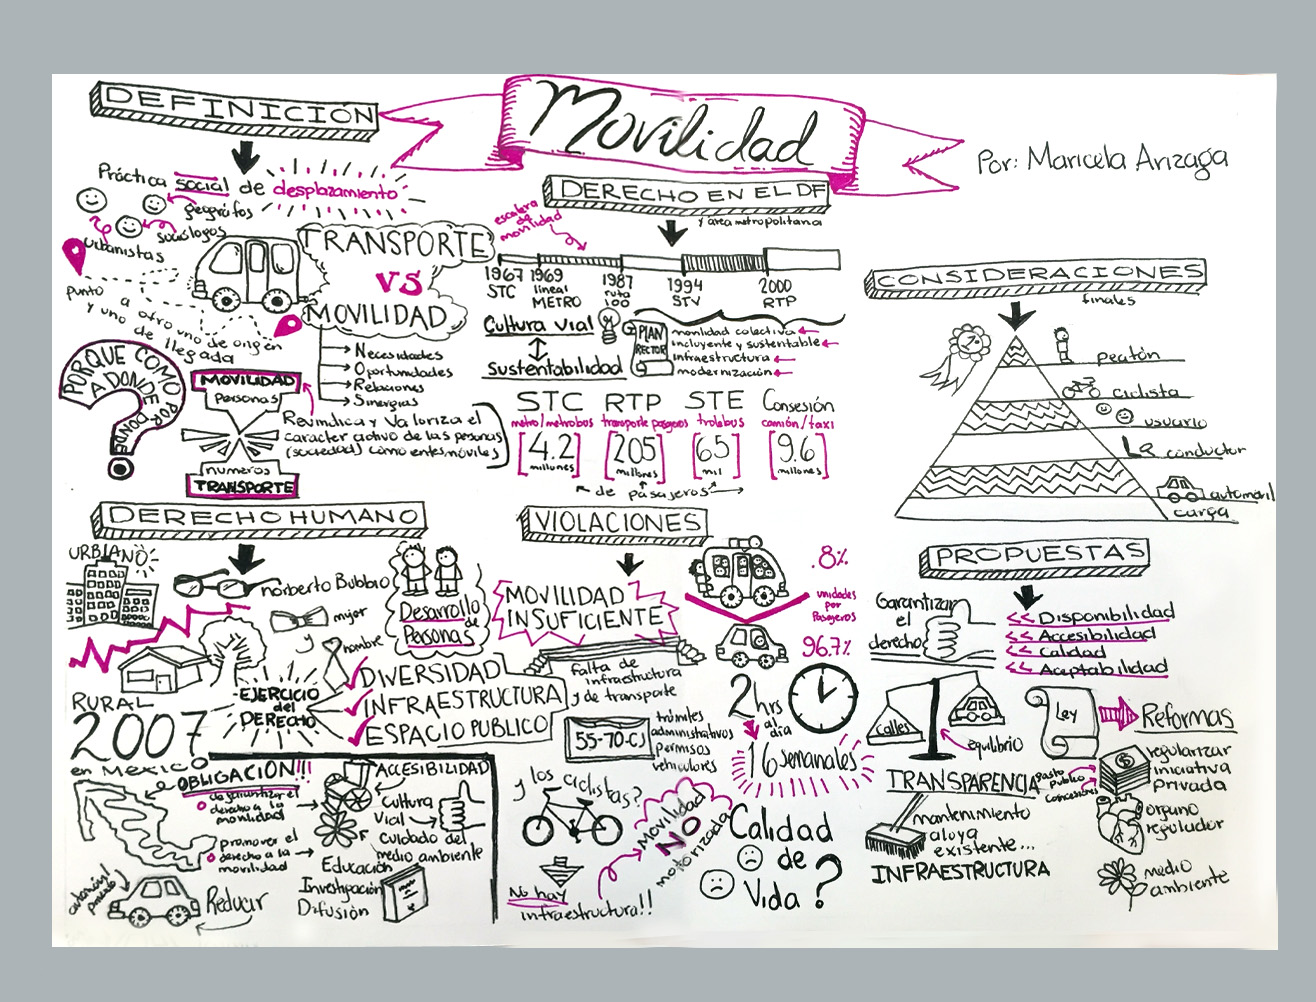 Movilidad
Por: Maricela Arizaga
DEFINICIÓN
Práctica social de desplazamiento
geógrafos
sociólogos
urbanistas
punto a otro uno de origen
y uno de llegada
TRANSPORTE
VS
MOVILIDAD
Necesidades
Oportunidades
Relaciones
Sinergias
PORQUE COMO
A DONDE POR
DONDE
MOVILIDAD
personas
numeros
TRANSPORTE
Reivindica y Valoriza el
caracter activo de las personas
(sociedad) como entes móviles
DERECHO EN EL DF
y area metropolitana
escalera
de
movilidad
1967
STC
1969
lineal
METRO
1987
ruta
100
1994
STV
2000
RTP
Cultura vial
Sustentabilidad
PLAN
RECTOR
movilidad colectiva
incluyente y sustentable
infraestructura
modernización
STC
metro/metrobus
[4.2]
millones
RTP
transporte pasajeros
[205]
millones
STE
trolebus
[65]
mil
Consesión
camión/taxi
[9.6]
millones
de pasajeros
CONSIDERACIONES
finales
peatón
ciclista
usuario
conductor
automovil
carga
DERECHO HUMANO
URBANO
RURAL
norberto Bubbio
mujer
y
hombre
Desarrollo
de
Personas
EJERCICIO
del
DERECHO
DIVERSIDAD
INFRAESTRUCTURA
ESPACIO PUBLICO
2007
en MEXICO
OBLIGACIÓN!!!
de garantizar el
derecho a la
movilidad
promover el
derecho a la
movilidad
ACCESIBILIDAD
Cultura
Vial
cuidado del
medio ambiente
Educación
Investigación
Difusión
Reducir
VIOLACIONES
MOVILIDAD
INSUFICIENTE
falta de
infraestructura
y de transporte
.8%
unidades
por
Pasajeros
96.7%
55-70-CJ
trámites
administrativos
permisos
vehiculares
2 hrs
al
día
16 semanales
y los ciclistas?
No hay
infraestructura!!
Movilidad
NO
motorizada
Calidad
de
Vida?
PROPUESTAS
Garantizar
el
derecho
Disponibilidad
Accesibilidad
Calidad
Aceptabilidad
calles
equilibrio
Ley
Reformas
TRANSPARENCIA
gasto
publico
concesiones
regularizar
iniciativa
privada
mantenimiento
a lo ya
existente...
INFRAESTRUCTURA
órgano
regulador
medio
ambiente